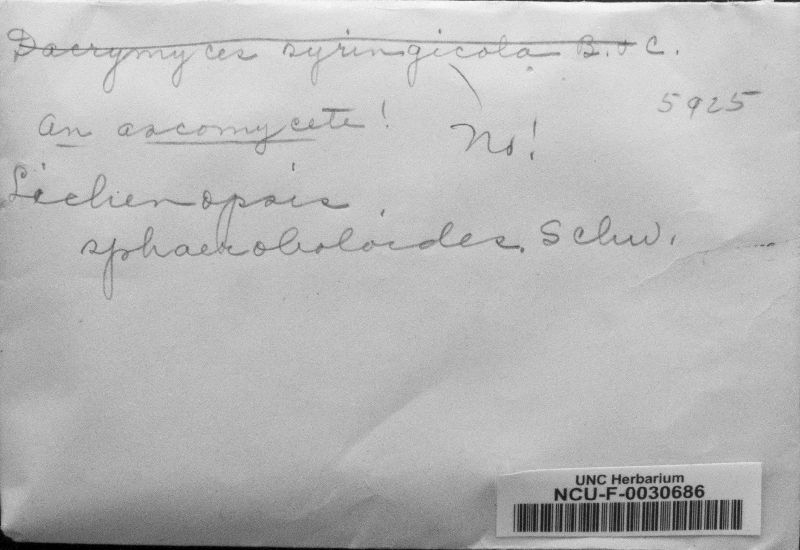 Dacrymyces syringicola B. & C.
5925
An ascomycete!
No!
Lichenopsis
sphaeroboloides. Schw.
UNC Herbarium
NCU-F-0030686